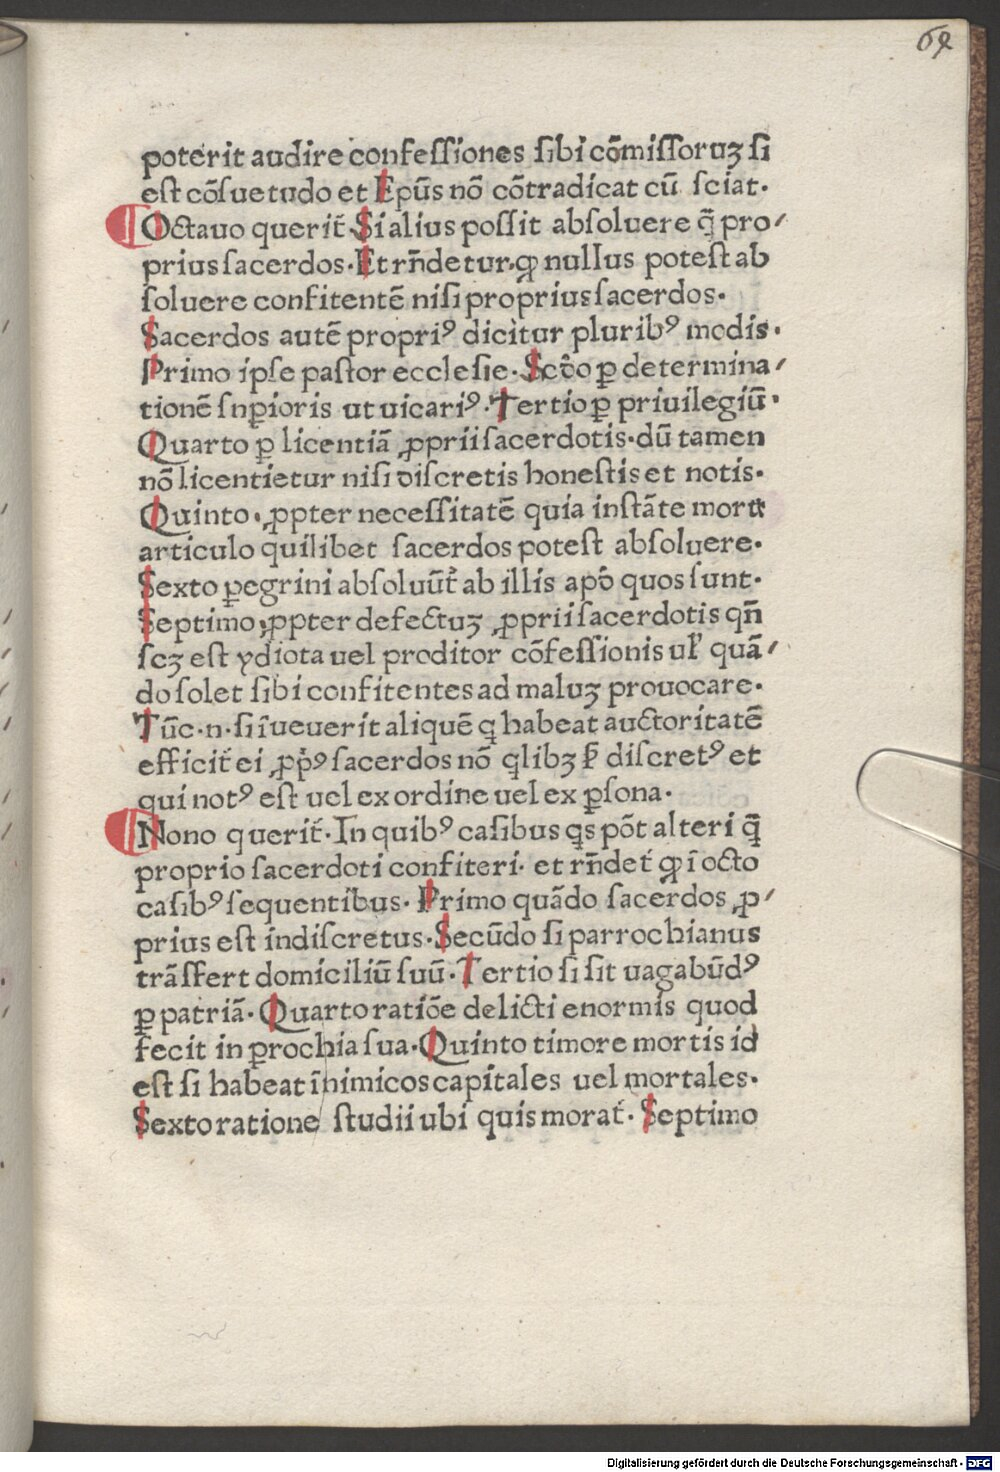 69
poterit audire confessiones sibi cōmissoruꝫ si
est cōsuetudo et Epūs nō cōtradicat cū sciat·
Octauo querit̄ Si alius possit absoluere q̄ pro⸗
prius sacerdos· Et rn̄detur· ꝙ nullus potest ab
soluere confitentē nisi proprius sacerdos·
Sacerdos autē propriꝰ dicitur pluribꝰ modis·
Primo ipse pastor ecclesie· Scd̄o ꝑ determina⸗
tionē snꝑioris ut uicariꝰ· Tertio ꝑ priuilegiū·
Quarto ꝑ licentiā ꝓprii sacerdotis· dū tamen
nō licentietur nisi discretis honestis et notis·
Quinto· ꝓpter necessitatē quia instāte mortis
articulo quilibet sacerdos potest absoluere·
Sexto ꝑegrini absoluūt̄ ab illis apd̄ quos sunt·
Septimo ꝓpter defectuꝫ ꝓprii sacerdotis qn̄
scꝫ est ydiota uel proditor cōfessionis ul̄ quā⸗
do solet sibi confitentes ad maluꝫ prouocare·
Tūc·n·si īueuerit aliquē q habeat auctoritatē
efficit̄ ei ꝓpͥꝰ sacerdos nō qlibꝫ sꝫ discretꝰ et
qui notꝰ est uel ex ordine uel ex ꝑsona·
Nono querit̄· In quibꝰ casibus qs pōt alteri q̄
proprio sacerdoti confiteri· et rn̄det̄ ꝙ ī octo
casibꝰ sequentibus· Primo quādo sacerdos ꝓ⸗
prius est indiscretus· Secūdo si parrochianus
trāsfert domiciliū suū· Tertio si sit uagabūdꝰ
ꝑ patriā· Quarto ratiōe delicti enormis quod
fecit in ꝑrochia sua· Quinto timore mortis id
est si habeat īnimicos capitales uel mortales·
Sexto ratione studii ubi quis morat̄· Septimo
Digitalisierung gefördert durch die Deutsche Forschungsgemeinschaft - DFG